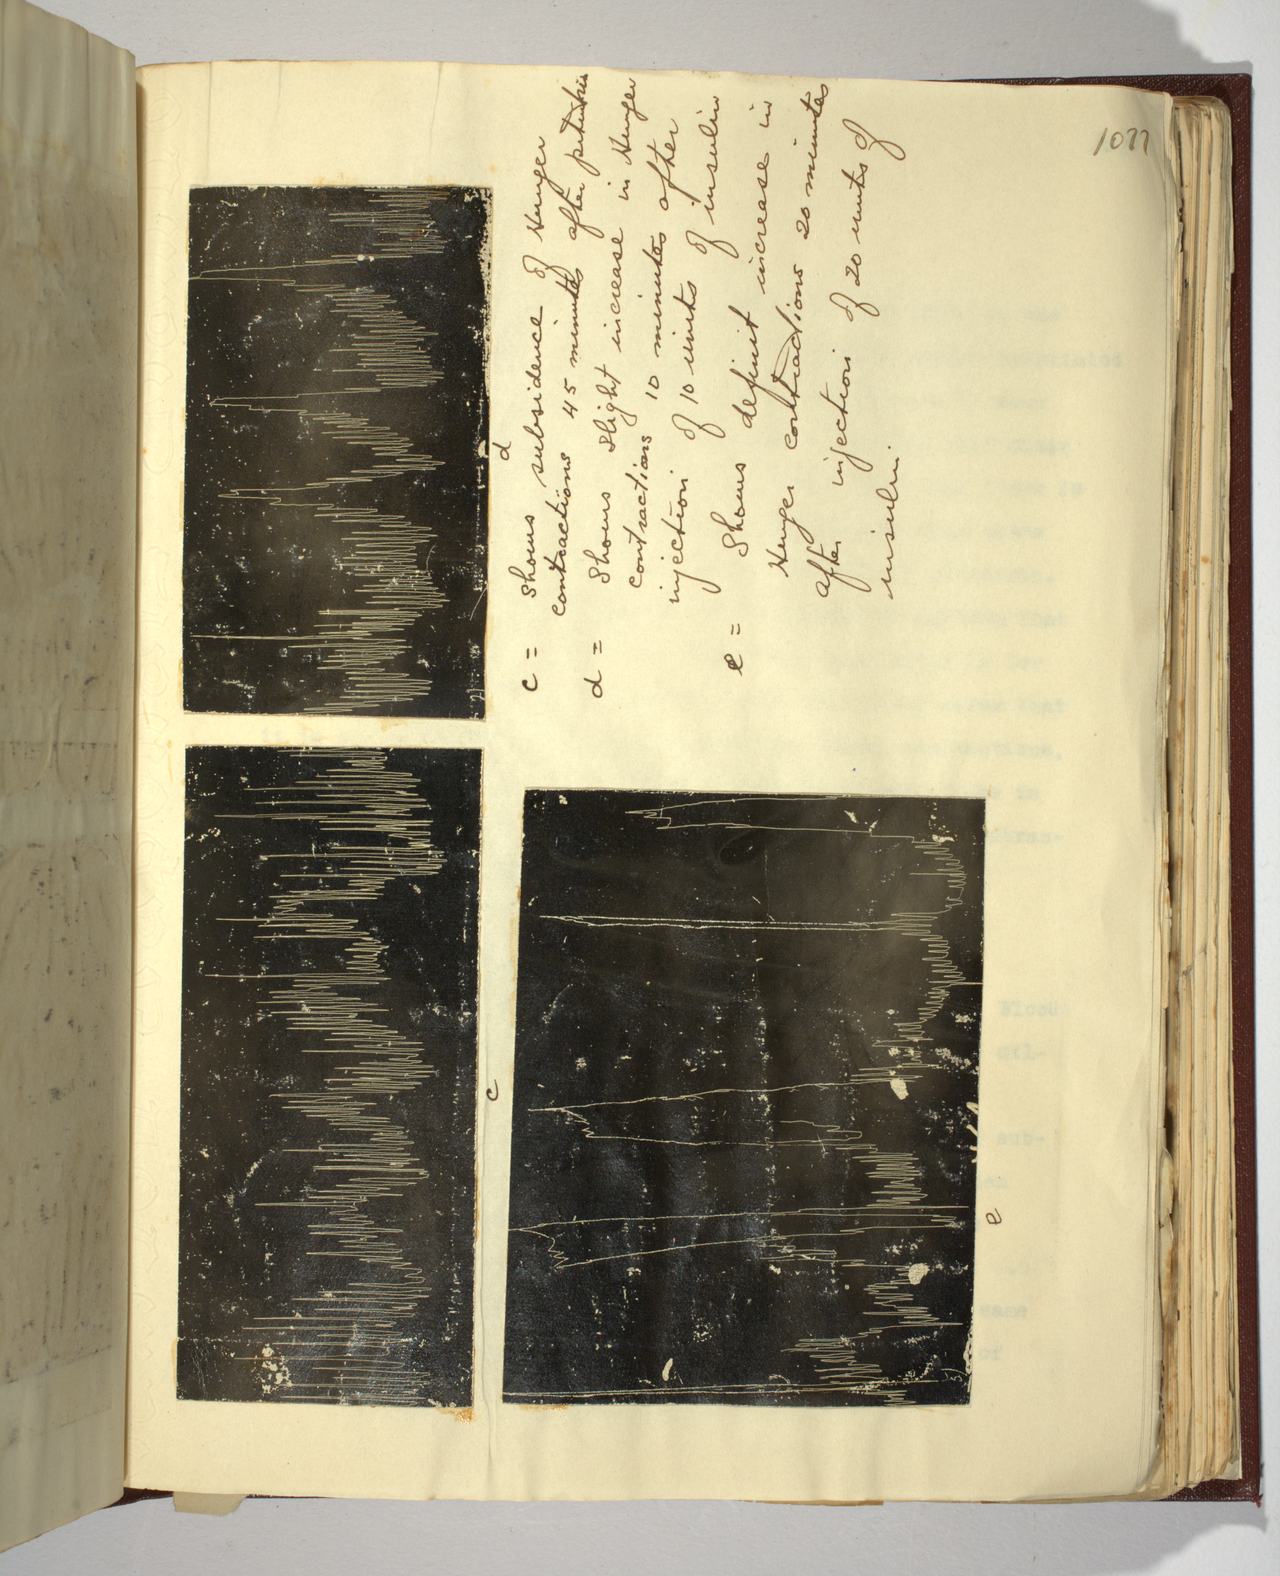 1077
c = Shows subsidence of Hunger
contractions 45 minutes after pituitrin
d = Shows slight increase in Hunger
contractions 10 minutes after
injection of 10 units of insulin
e = Shows definit increase in
Hunger contractions 20 minutes
after injection of 20 units of
insulin
d
c
e